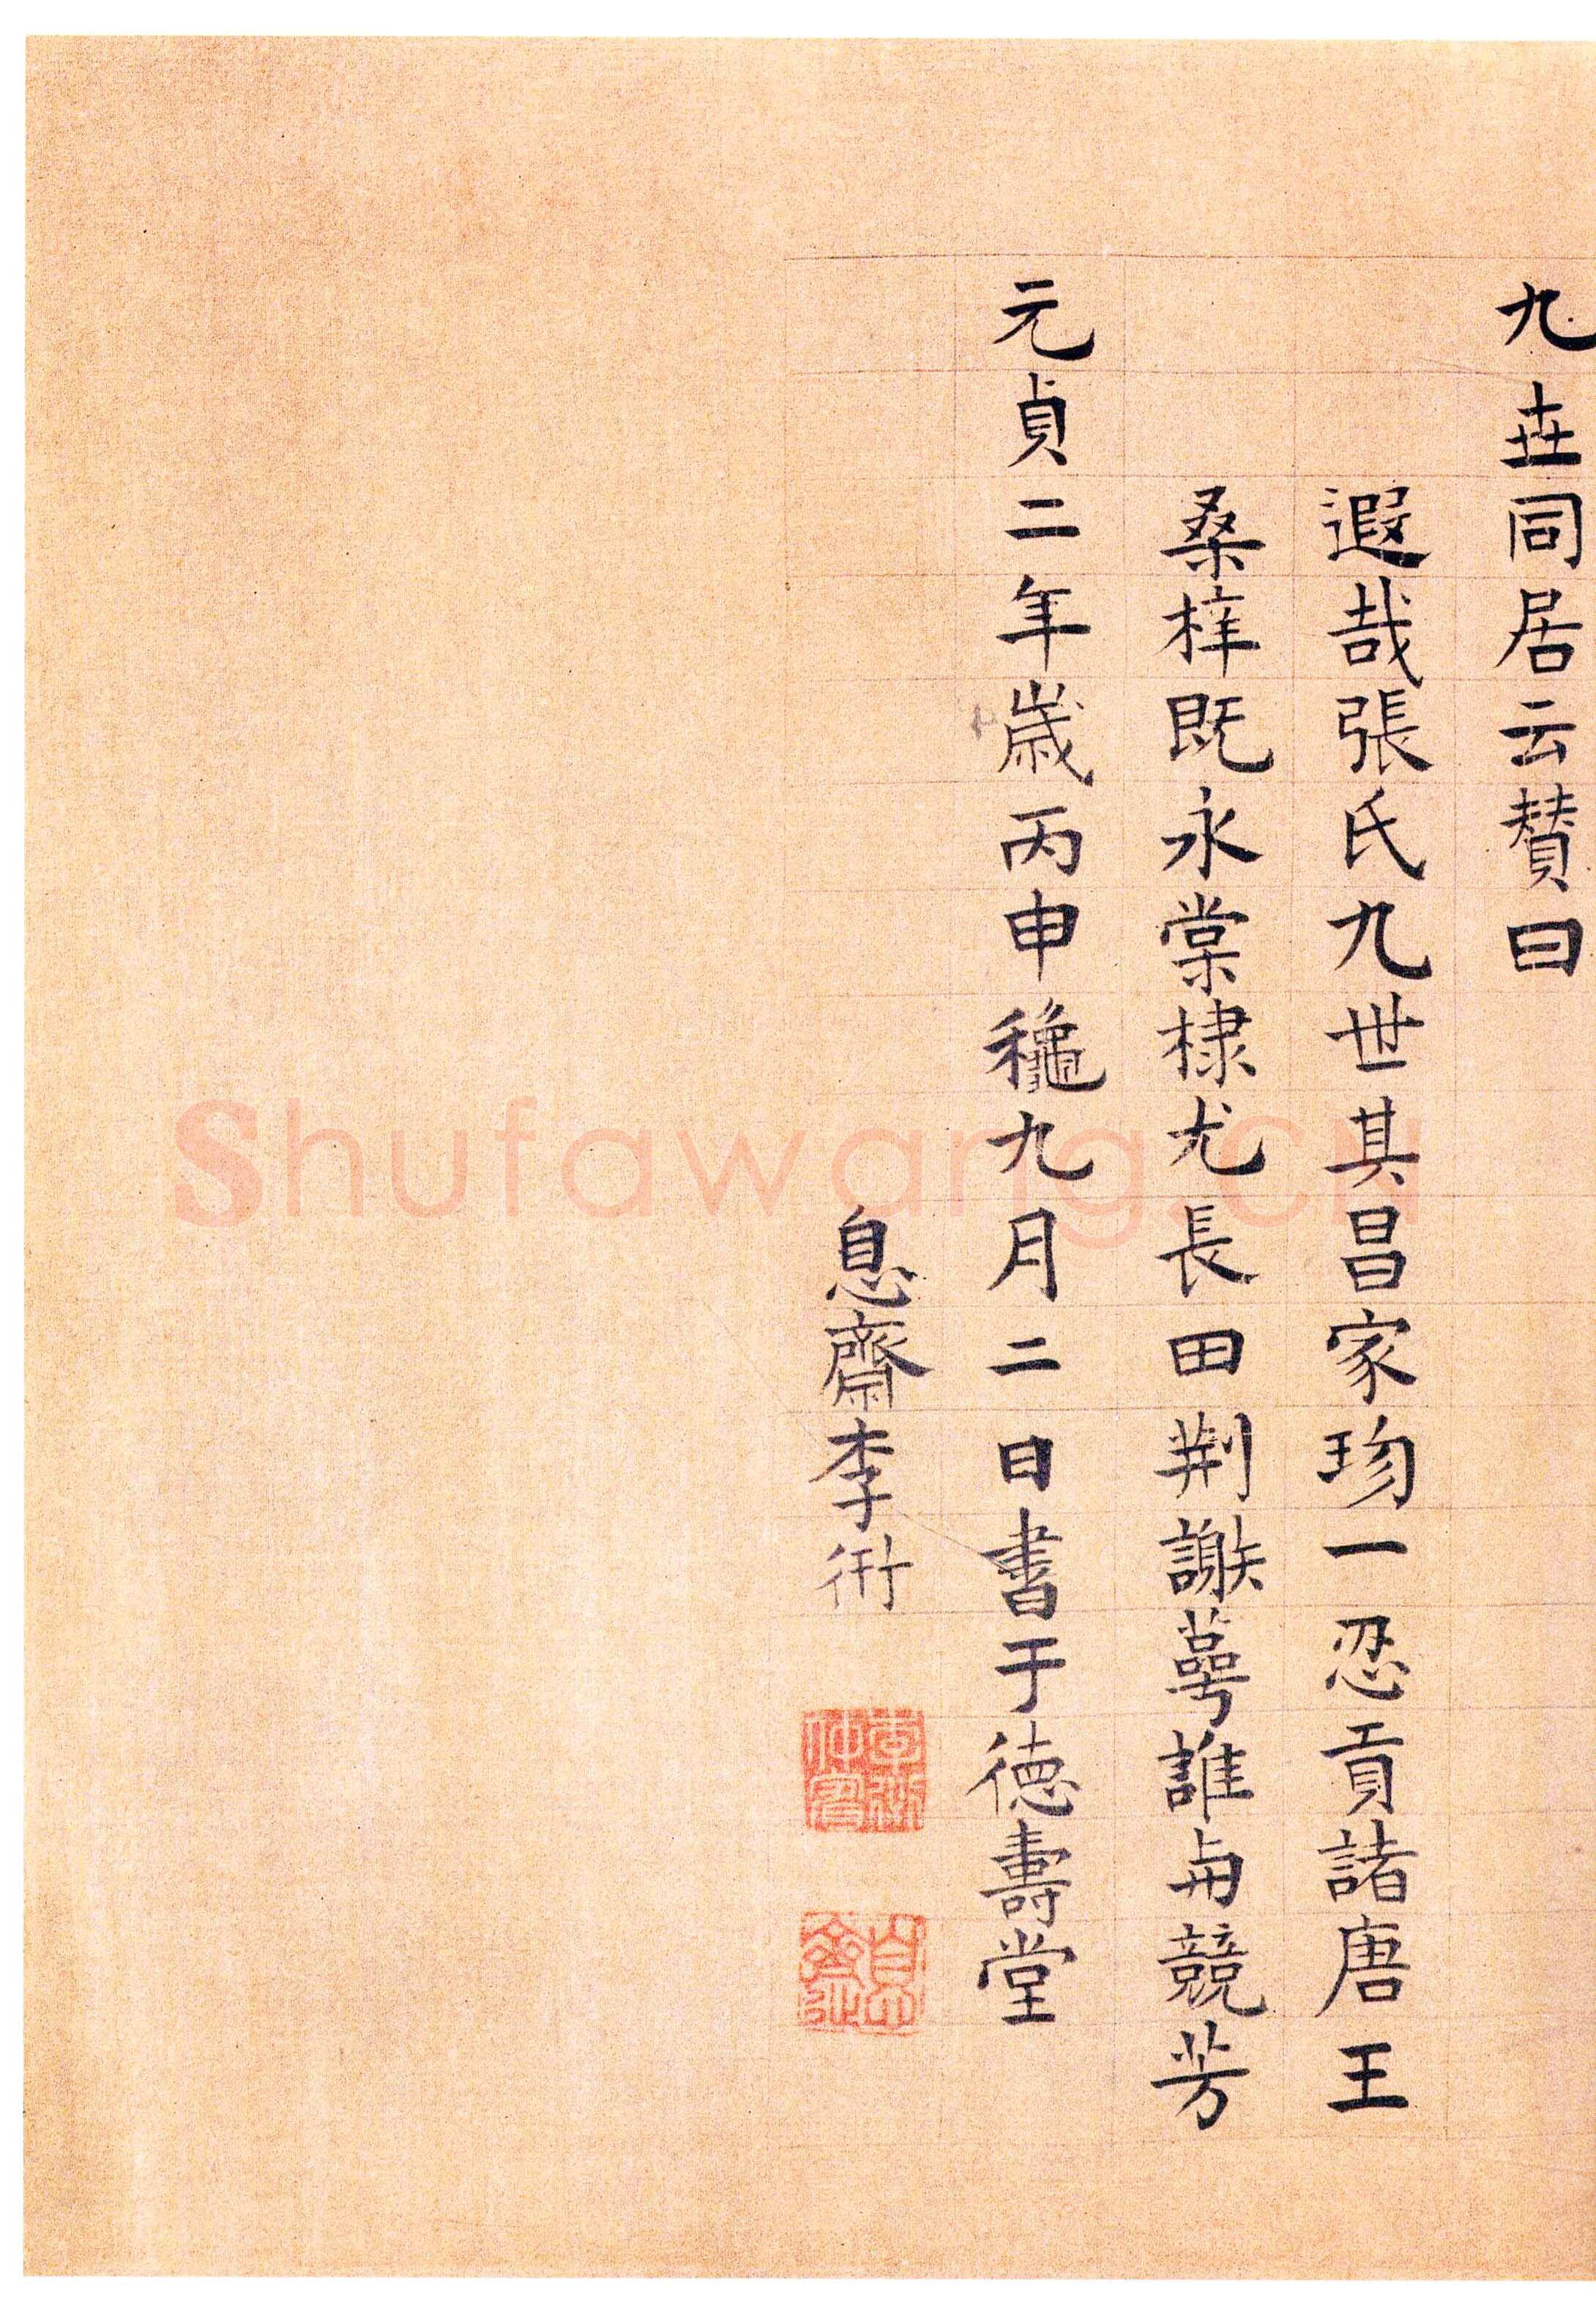 九世同居云赞曰
遐哉張氏九世其昌家珎一忍貢諸唐王
桑梓既永棠棣尤長田荆謝萼誰与競芳
元貞二年歳丙申穐九月二日書于徳壽堂
息齋李衎
李衎仲賓
息齋
Shufawang.CN